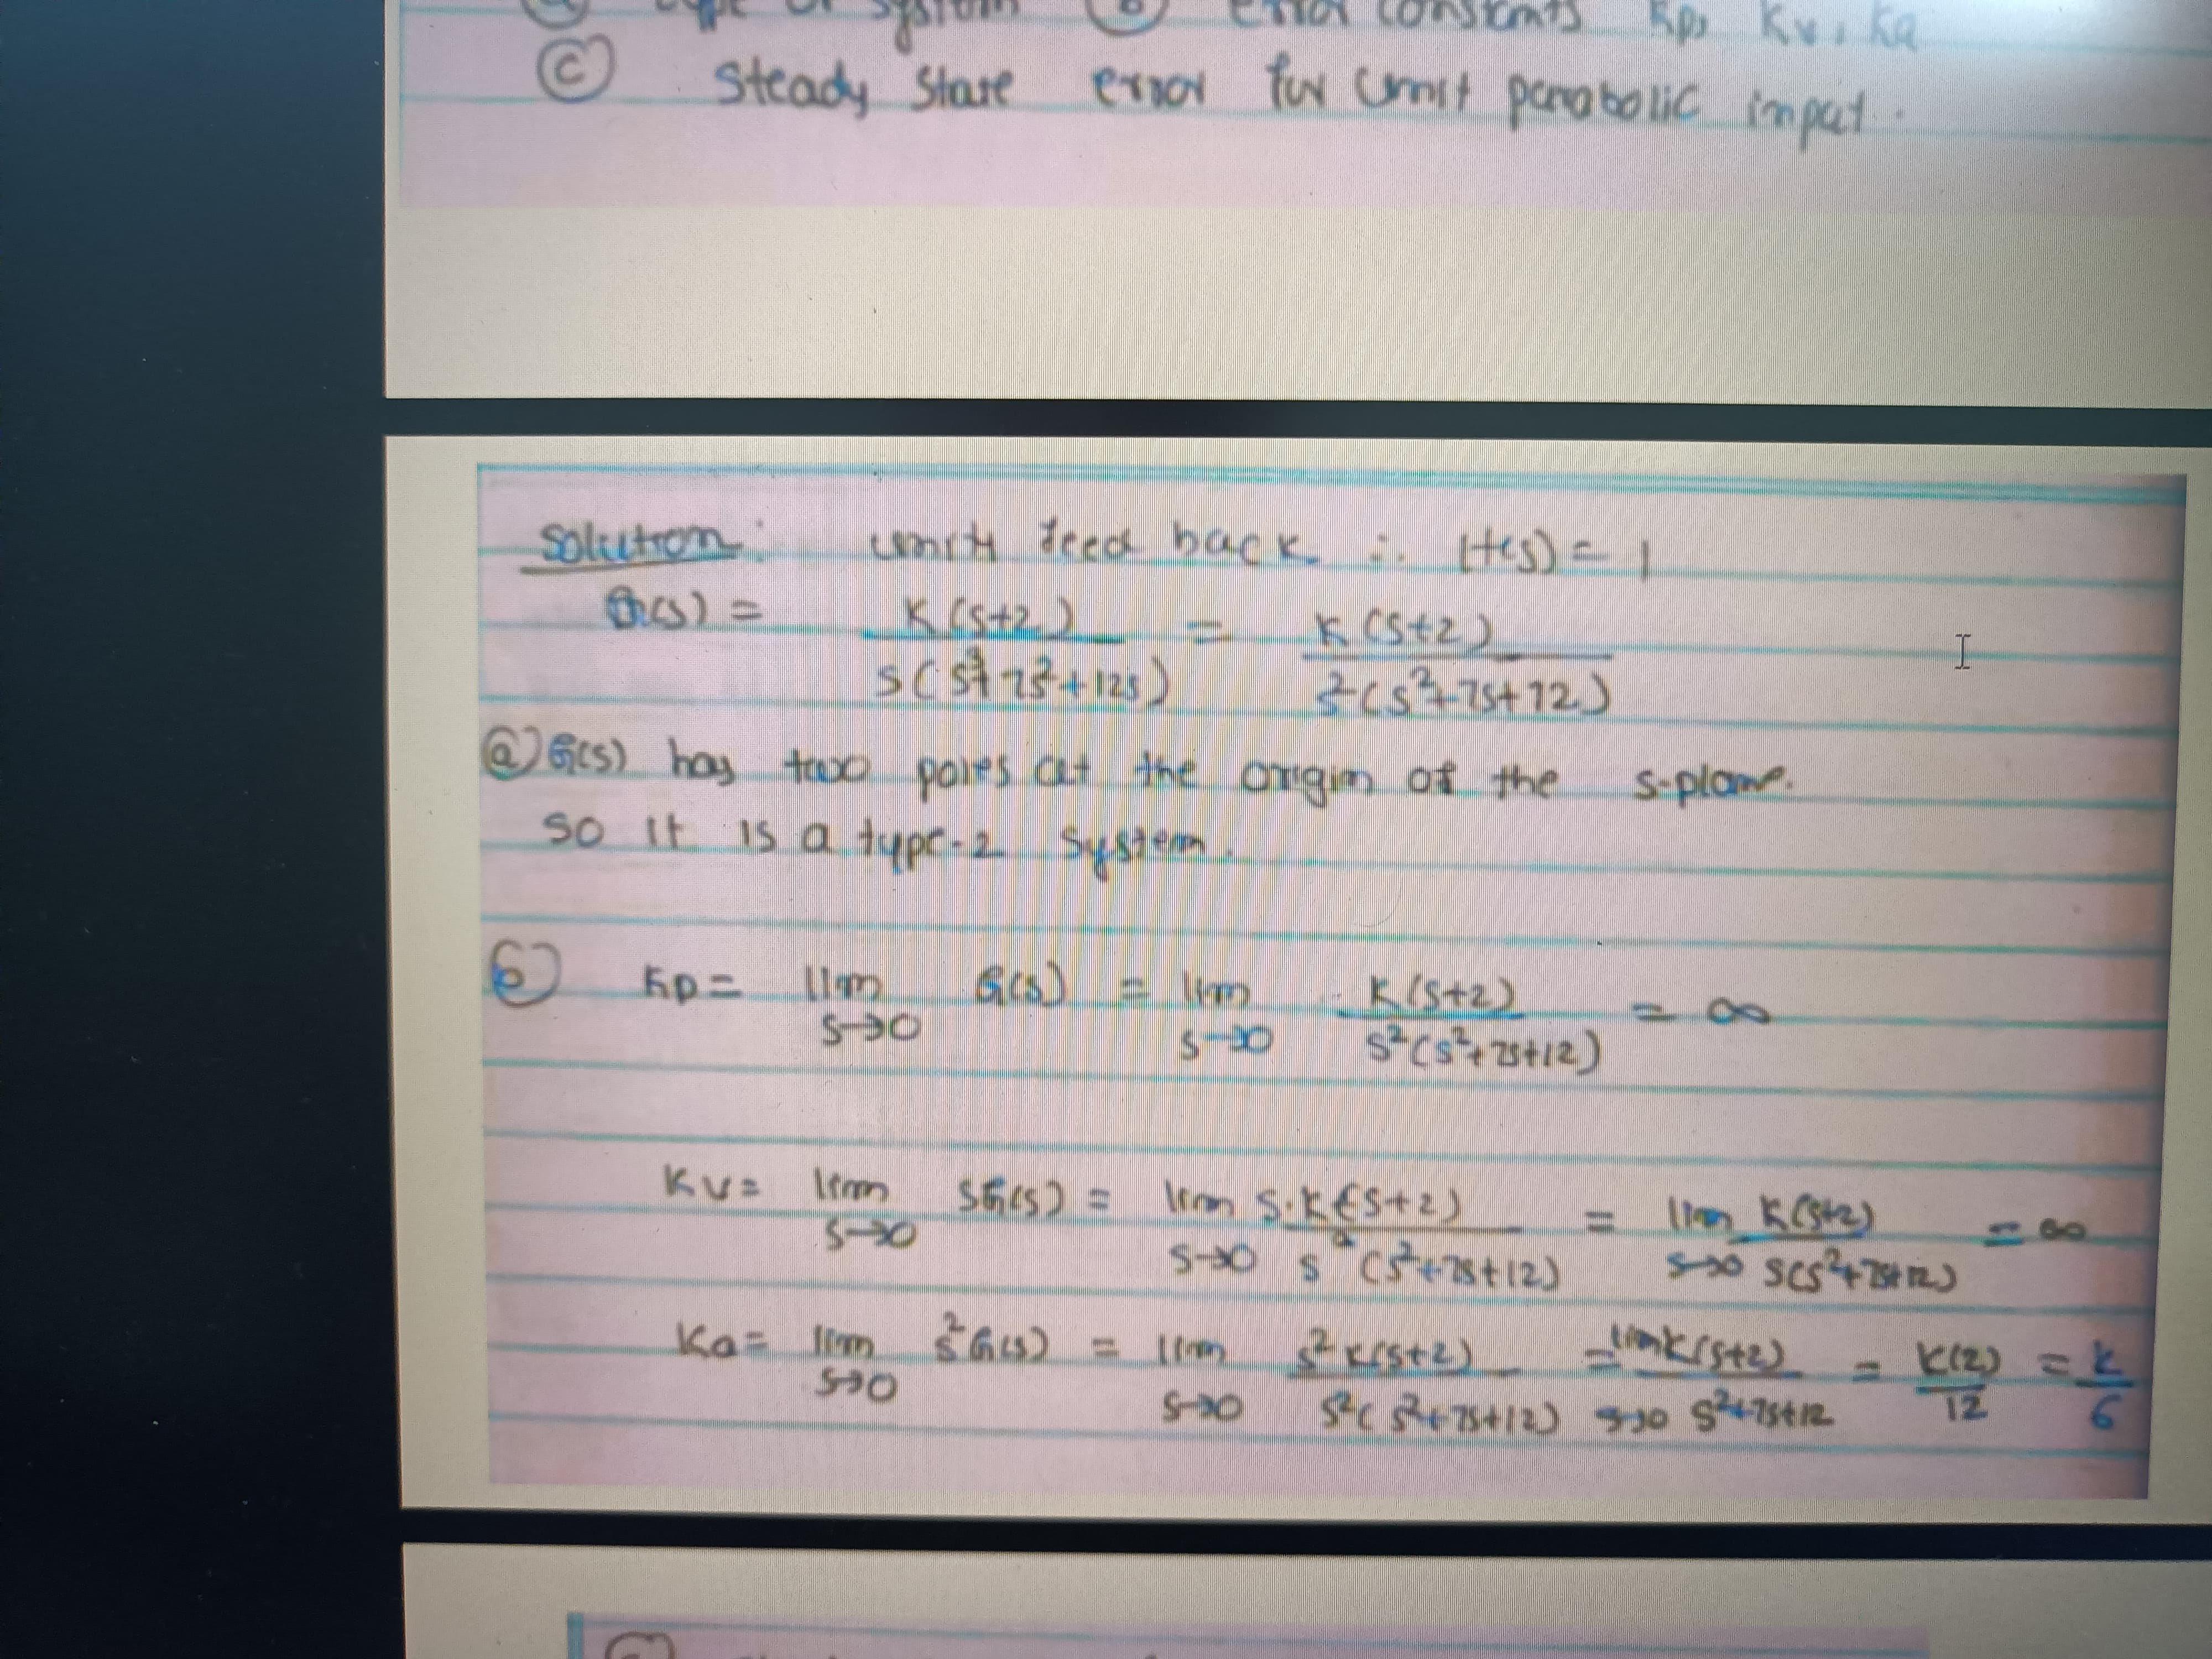 type of system (b) error constants Kp, Kv, Ka
(c) Steady State error for unit parabolic input.
Solution: unity feed back ∴ H(s) = 1
G(s) = K(s+2) / s(s³+7s²+12s) = K(s+2) / s²(s²+7s+12)
(a) G(s) has two poles at the origin of the s-plane.
so it is a type-2 system.
(b) Kp = lim s→0 G(s) = lim s→0 K(s+2) / s²(s²+7s+12) = ∞
Kv = lim s→0 sG(s) = lim s→0 s.K(s+2) / s²(s²+7s+12) = lim s→0 K(s+2) / s(s²+7s+12) = ∞
Ka = lim s→0 s²G(s) = lim s→0 s²K(s+2) / s²(s²+7s+12) = lim s→0 K(s+2) / s²+7s+12 = K(2) / 12 = K / 6